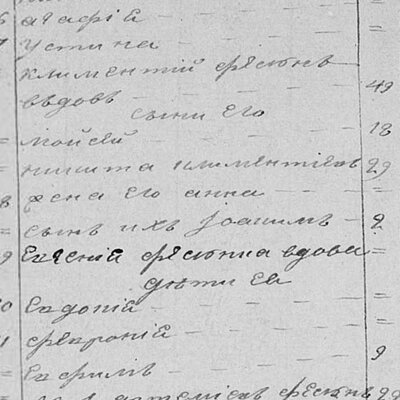 6 агафіа
7 устина
климентій фесюнъ
вдовъ 49
сыни его
мойсей 18
никита климентіевъ 29
8 жена его анна
сынъ ихъ іоакимъ 2
9 Евгеній фесюнка вдова
дѣти Ея
0 Евдокій
1 февроній
Ефримъ 9
артеміевъ фесюнъ 29